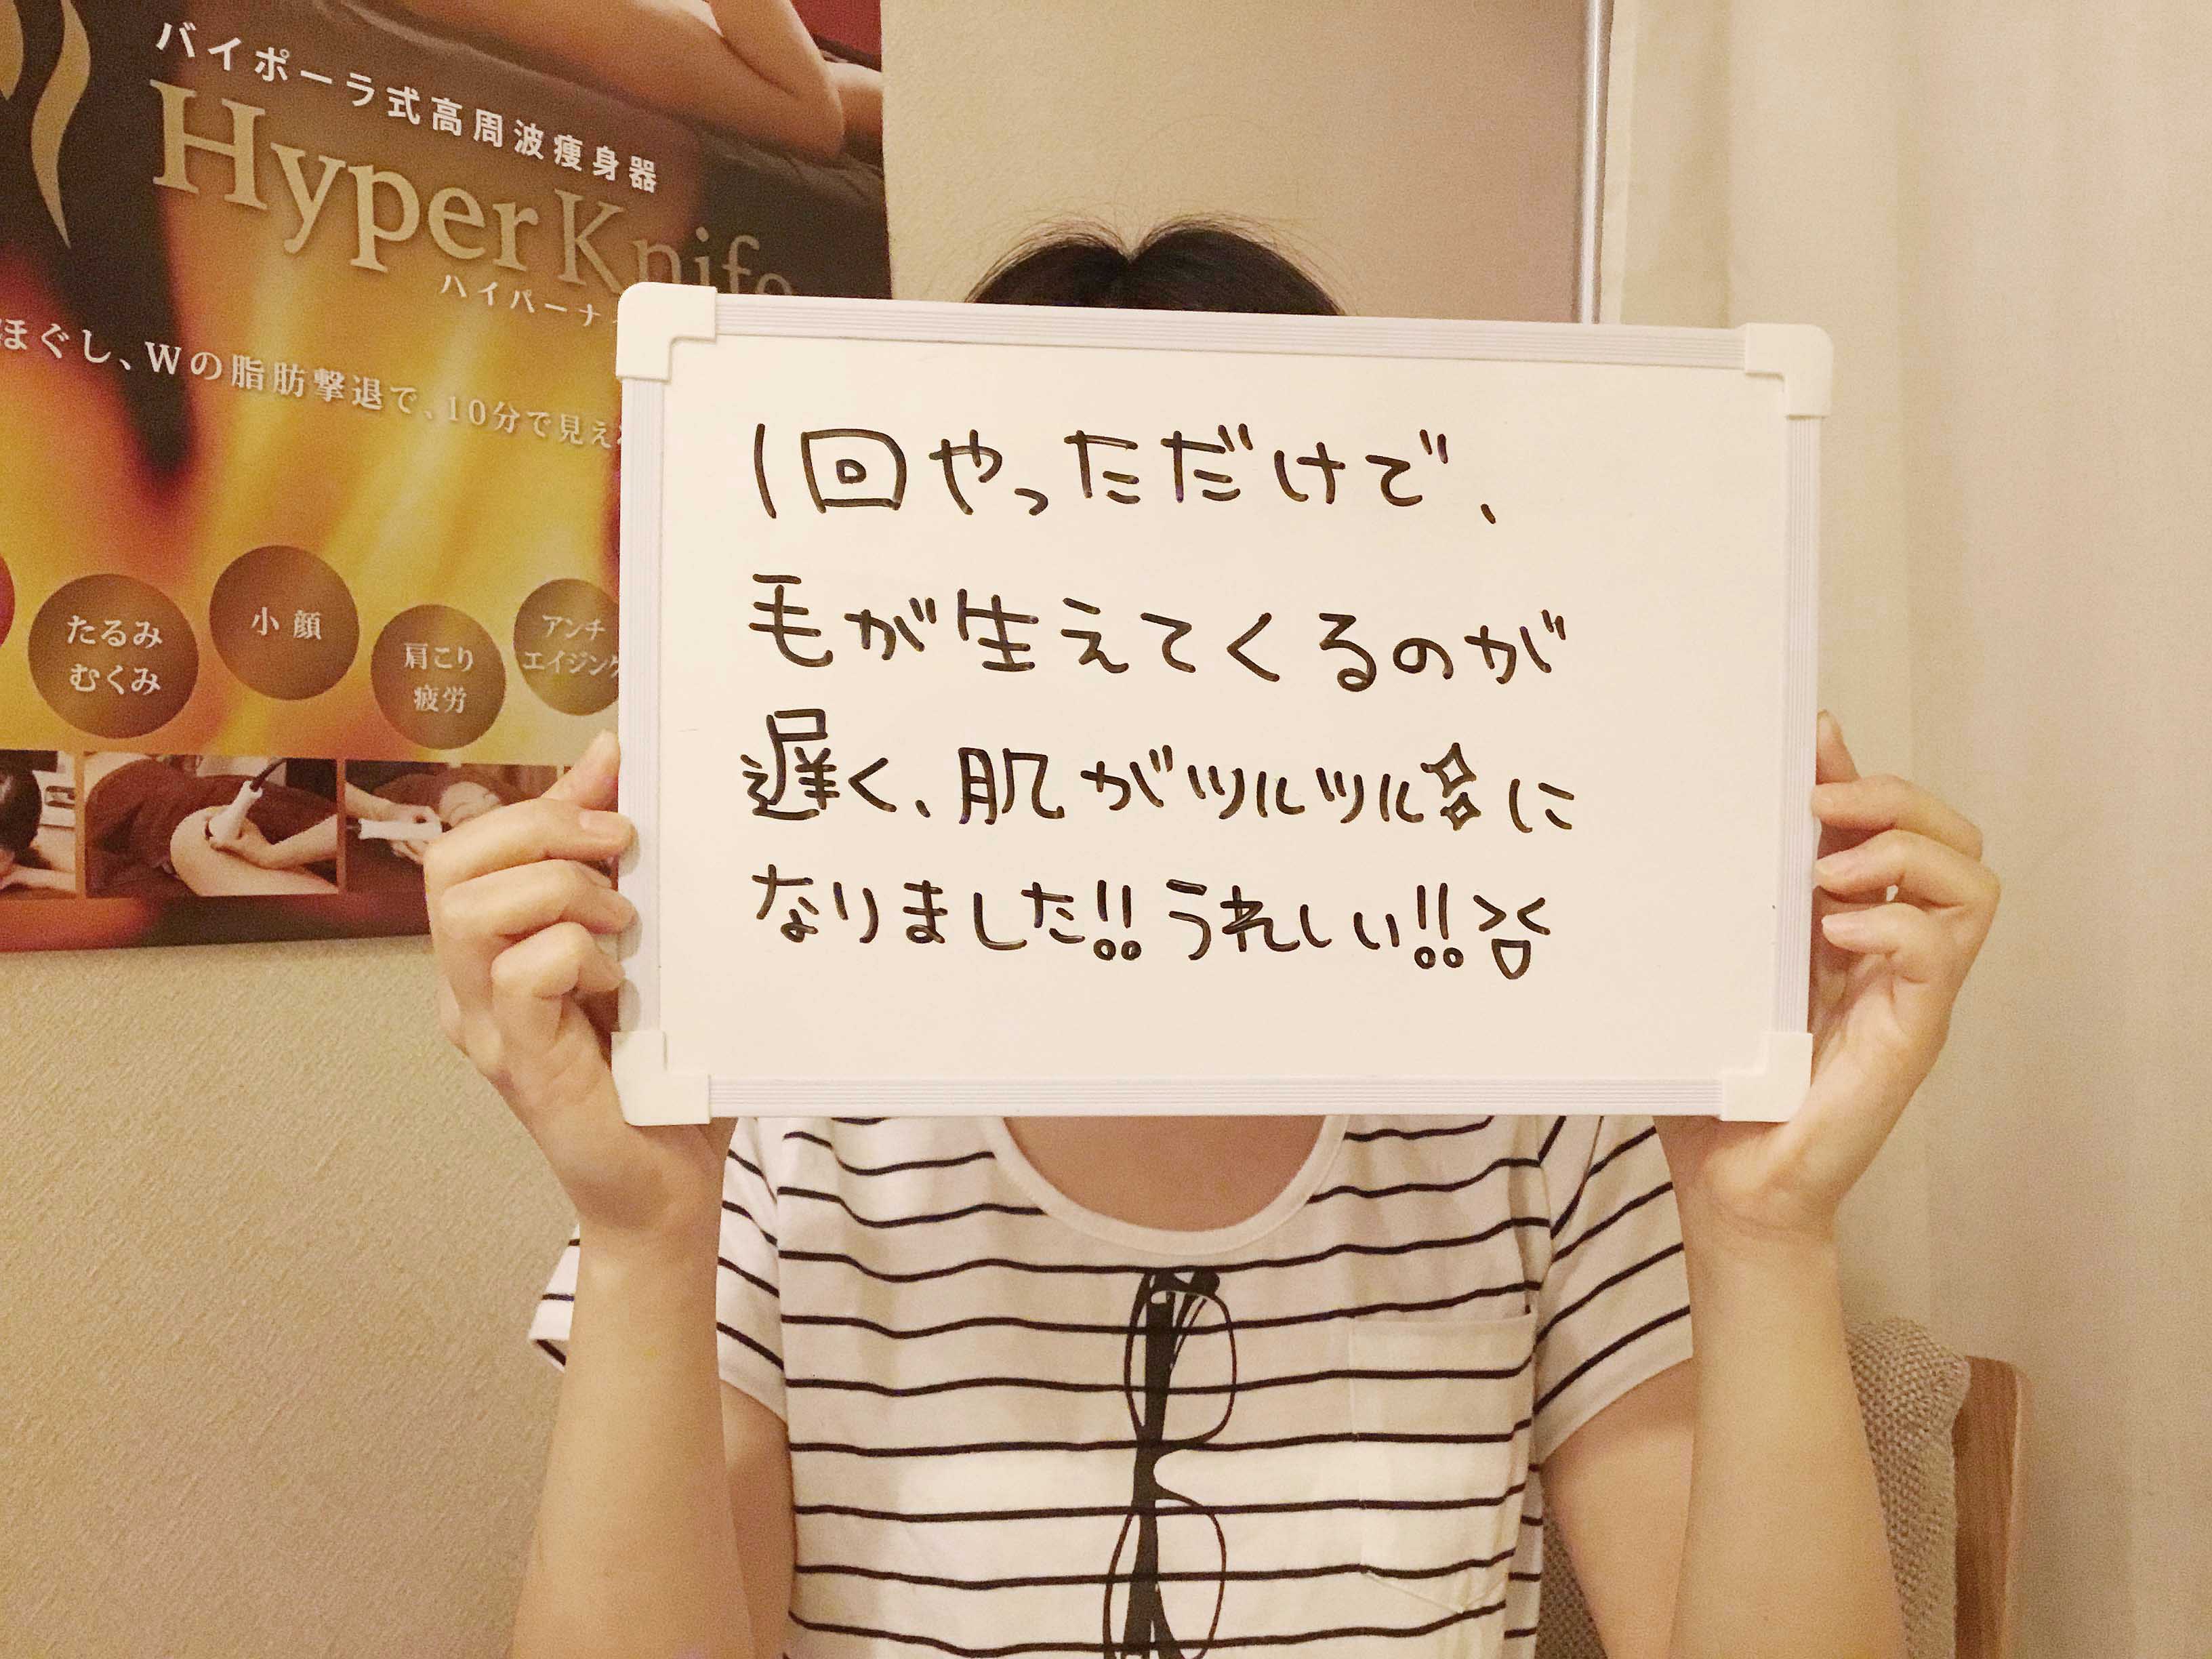 バイポーラ式高周波痩身器
HyperKnife
ハイパーナ
ほぐし、Wの脂肪撃退で、10分で見え
たるみ
むくみ
小顔
肩こり
疲労
アンチ
エイジング
1回やっただけで、
毛が生えてくるのが
遅く、肌がツルツルに
なりました!!うれしい!!